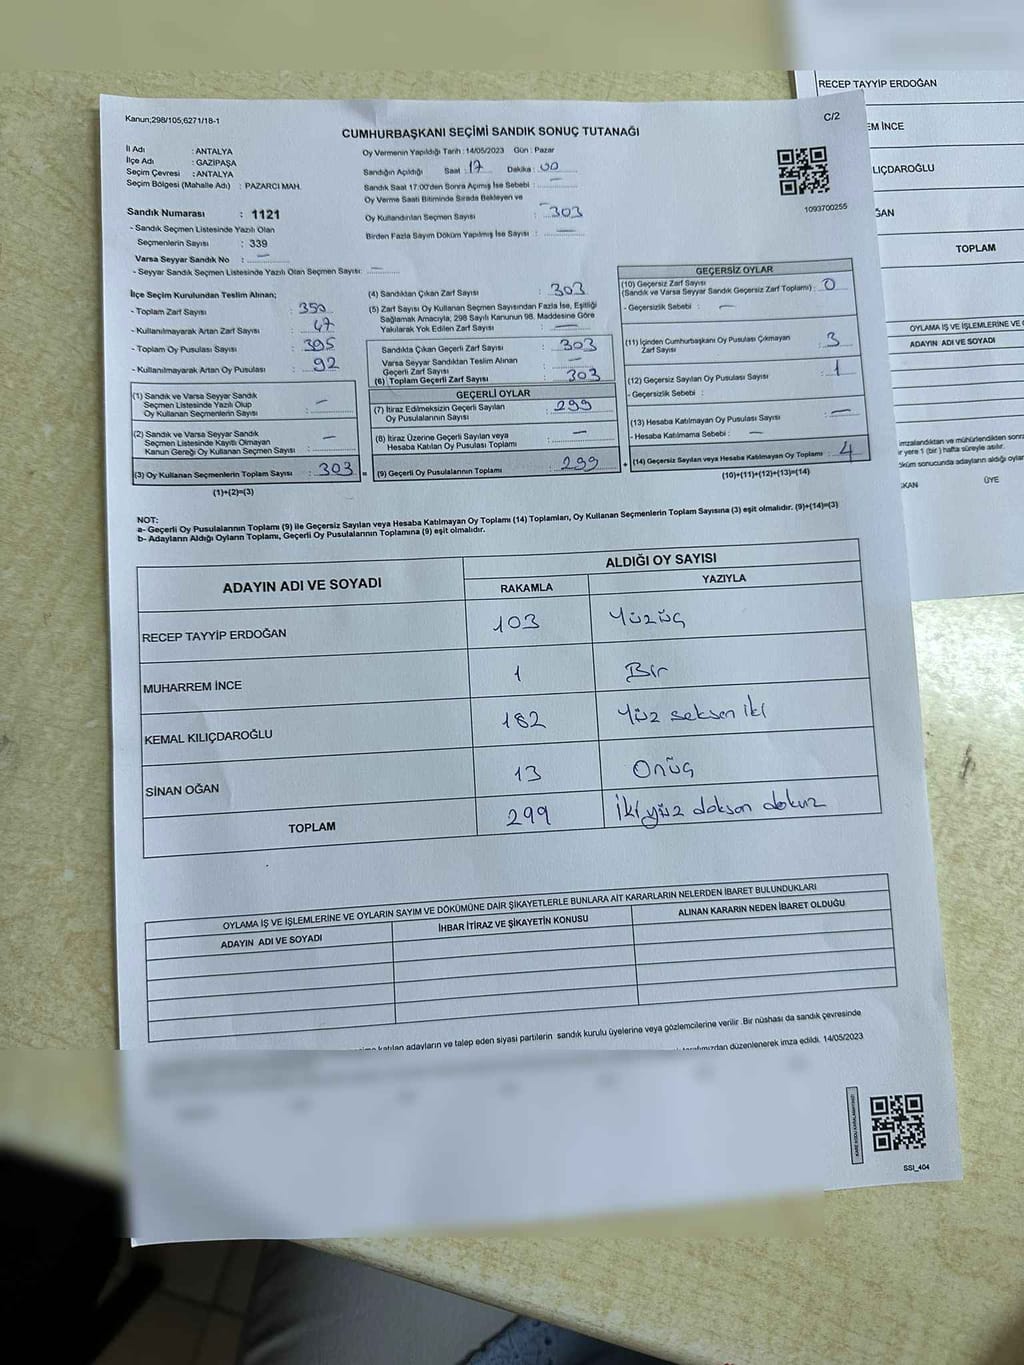 Kanun;298/105,6271/18-1
C/2
CUMHURBAŞKANI SEÇİMİ SANDIK SONUÇ TUTANAĞI
İl Adı : ANTALYA
İlçe Adı : GAZİPAŞA
Seçim Çevresi : ANTALYA
Seçim Bölgesi (Mahalle Adı) : PAZARCI MAH.
Sandık Numarası : 1121
- Sandık Seçmen Listesinde Yazılı Olan
Seçmenlerin Sayısı : 339
Varsa Seyyar Sandık No : —
- Seyyar Sandık Seçmen Listesinde Yazılı Olan Seçmen Sayısı: —
Oy Vermenin Yapıldığı Tarih : 14/05/2023 Gün : Pazar
Sandığın Açıldığı Saat : 17 Dakika : 00
Sandık Saat 17:00'den Sonra Açımış İse Sebebi : —
Oy Verme Saati Bitiminde Sırada Bekleyen ve
Oy Kullandırılan Seçmen Sayısı : 303
Birden Fazla Sayım Döküm Yapılmış İse Sayısı : —
1093700255
İlçe Seçim Kurulundan Teslim Alınan;
- Toplam Zarf Sayısı : 350
- Kullanılmayarak Artan Zarf Sayısı : 47
- Toplam Oy Pusulası Sayısı : 395
- Kullanılmayarak Artan Oy Pusulası : 92
(1) Sandık ve Varsa Seyyar Sandık
Seçmen Listesinde Yazılı Olup
Oy Kullanan Seçmenlerin Sayısı : —
(2) Sandık ve Varsa Seyyar Sandık
Seçmen Listesinde Kayıtlı Olmayan
Kanun Gereği Oy Kullanan Seçmen Sayısı : —
(3) Oy Kullanan Seçmenlerin Toplam Sayısı : 303 =
(1)+(2)=(3)
(4) Sandıktan Çıkan Zarf Sayısı : 303
(5) Zarf Sayısı Oy Kullanan Seçmen Sayısından Fazla İse, Eşitliği
Sağlamak Amacıyla, 298 Sayılı Kanunun 98. Maddesine Göre
Yakılarak Yok Edilen Zarf Sayısı : —
Sandıkta Çıkan Geçerli Zarf Sayısı : 303
Varsa Seyyar Sandıktan Teslim Alınan
Geçerli Zarf Sayısı : —
(6) Toplam Geçerli Zarf Sayısı : 303
GEÇERLİ OYLAR
(7) İtiraz Edilmeksizin Geçerli Sayılan
Oy Pusulalarının Sayısı : 299
(8) İtiraz Üzerine Geçerli Sayılan veya
Hesaba Katılan Oy Pusulaları Toplamı : —
(9) Geçerli Oy Pusulalarının Toplamı : 299 +
GEÇERSİZ OYLAR
(10) Geçersiz Zarf Sayısı
(Sandık ve Varsa Seyyar Sandık Geçersiz Zarf Toplamı) : 0
- Geçersizlik Sebebi : —
(11) İçinden Cumhurbaşkanı Oy Pusulası Çıkmayan
Zarf Sayısı : 3
(12) Geçersiz Sayılan Oy Pusulası Sayısı : 1
- Geçersizlik Sebebi :
(13) Hesaba Katılmayan Oy Pusulası Sayısı : —
- Hesaba Katılmama Sebebi : —
(14) Geçersiz Sayılan veya Hesaba Katılmayan Oy Toplamı : 4
(10)+(11)+(12)+(13)=(14)
NOT:
a- Geçerli Oy Pusulalarının Toplamı (9) ile Geçersiz Sayılan veya Hesaba Katılmayan Oy Toplamı (14) Toplamları, Oy Kullanan Seçmenlerin Toplam Sayısına (3) eşit olmalıdır. (9)+(14)=(3)
b- Adayların Aldığı Oyların Toplamı, Geçerli Oy Pusulalarının Toplamına (9) eşit olmalıdır.
ADAYIN ADI VE SOYADI
ALDIĞI OY SAYISI
RAKAMLA YAZIYLA
RECEP TAYYİP ERDOĞAN 103 Yüzüç
MUHARREM İNCE 1 Bir
KEMAL KILIÇDAROĞLU 182 Yüz seksen iki
SİNAN OĞAN 13 Onüç
TOPLAM 299 İkiyüz doksan dokuz
OYLAMA İŞ VE İŞLEMLERİNE VE OYLARIN SAYIM VE DÖKÜMÜNE DAİR ŞİKAYETLERLE BUNLARA AİT KARARLARIN NELERDEN İBARET BULUNDUKLARI
ADAYIN ADI VE SOYADI İHBAR İTİRAZ VE ŞİKAYETİN KONUSU ALINAN KARARIN NEDEN İBARET OLDUĞU
katılan adayların ve talep eden siyasi partilerin sandık kurulu üyelerine veya gözlemcilerine verilir .Bir nüshası da sandık çevresinde
düzenlenerek imza edildi. 14/05/2023
SSI_404
RECEP TAYYİP ERDOĞAN
EM İNCE
LIÇDAROĞLU
ĞAN
TOPLAM
OYLAMA İŞ VE İŞLEMLERİNE VE
ADAYIN ADI VE SOYADI
imzalandıktan ve mühürlendikten
yere 1 (bir ) hafta süreyle asılır.
sonucunda adayların aldığı
KAN ÜYE